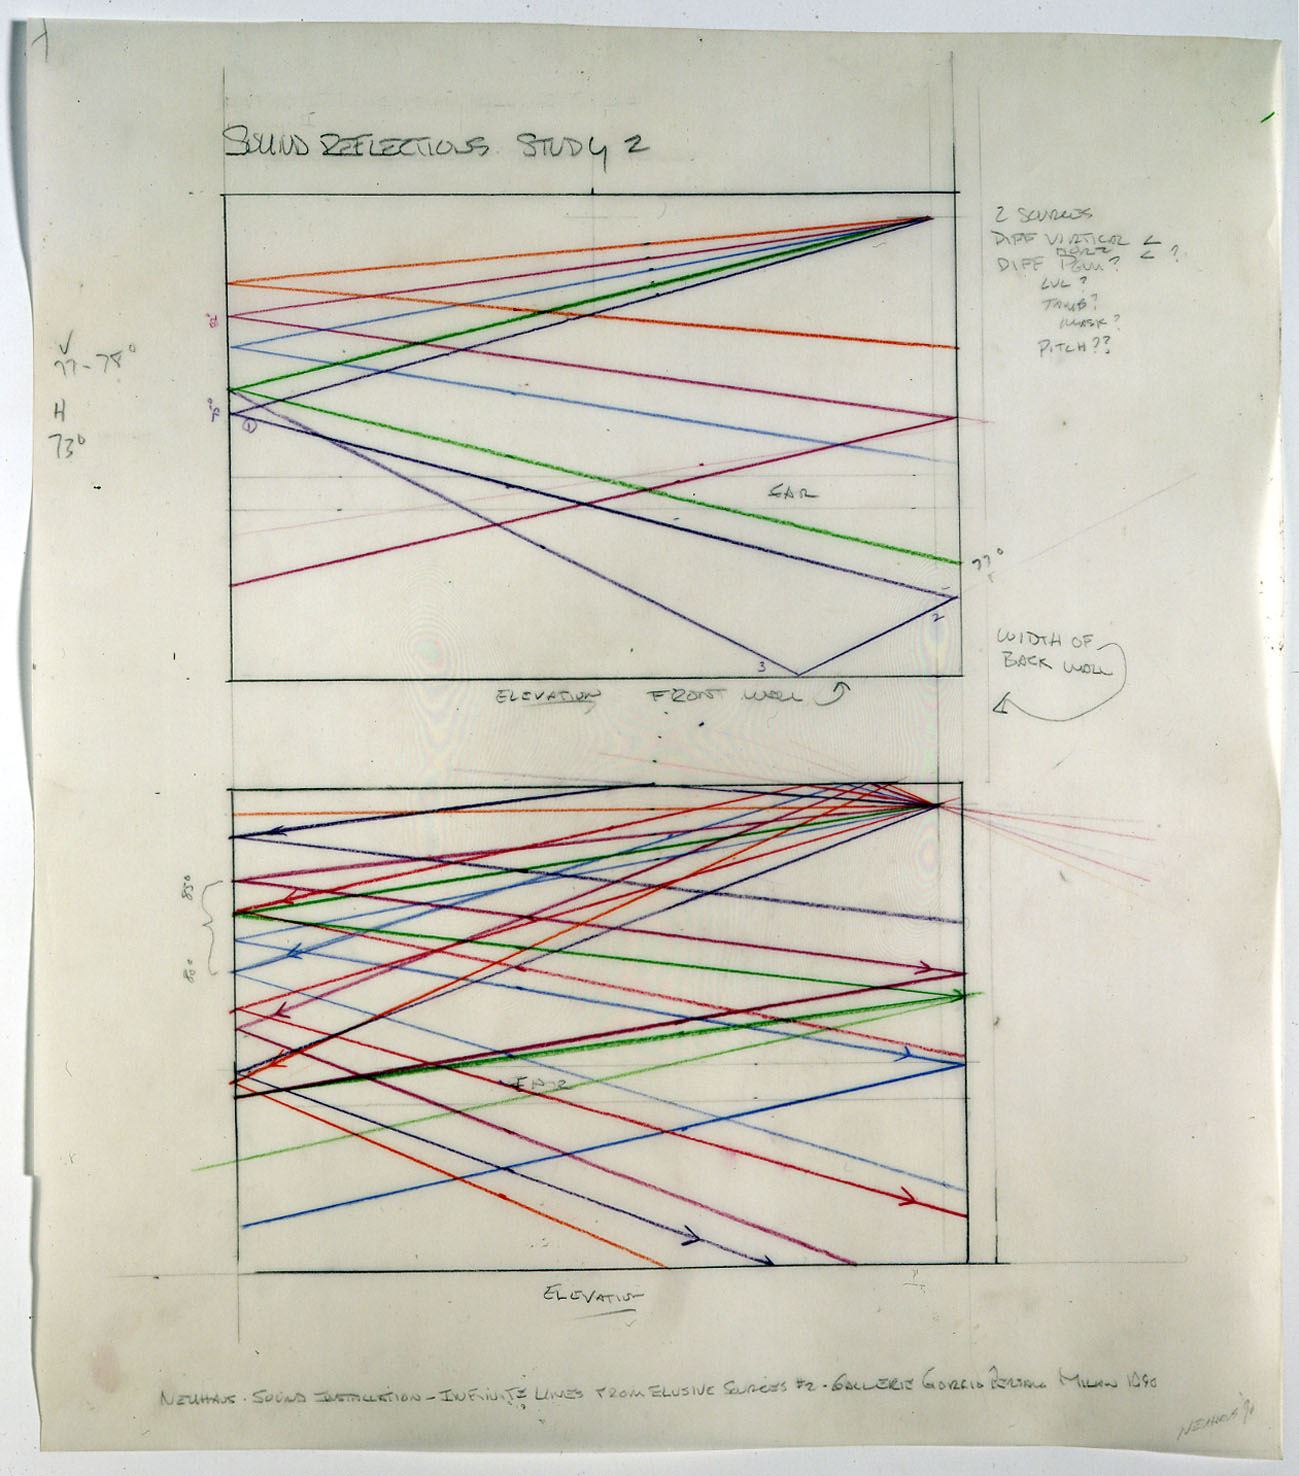 SOUND REFLECTIONS STUDY 2
2 SOURCES
DIFF VIRTICAL <
HORZ < ?
DIFF PGM?
LVL?
TIMB?
MASK?
PITCH??
V
77-78°
H
73°
75°
1
EAR
77°
2
3
ELEVATION FRONT WALL
WIDTH OF
BACK WALL
85°
80°
EAR
ELEVATION
NEUHAUS · SOUND INSTALLATION - INFINITE LINES FROM ELUSIVE SOURCES #2 · GALLERIE GIORGIO PERSANO MILAN 1990
NEUHAUS 90